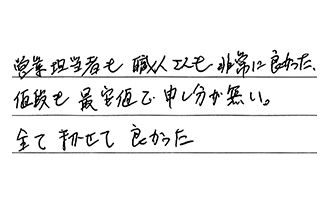 営業担当者も 職人さんも 非常に良かった、
値段も 最安値で 申し分が無い。
全て まかせて 良かった